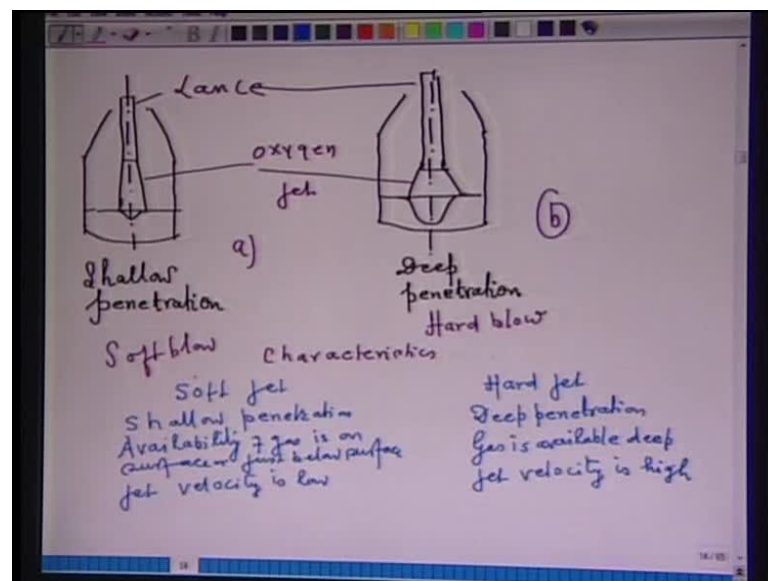 B I
Lance
oxygen
jet
a)
b
Shallow
penetration
Deep
penetration
Soft blow
Hard blow
Characteristics
Soft jet
Shallow penetration
Availability of gas is on
surface or just below surface
jet velocity is low
Hard jet
Deep penetration
Gas is available deep
jet velocity is high